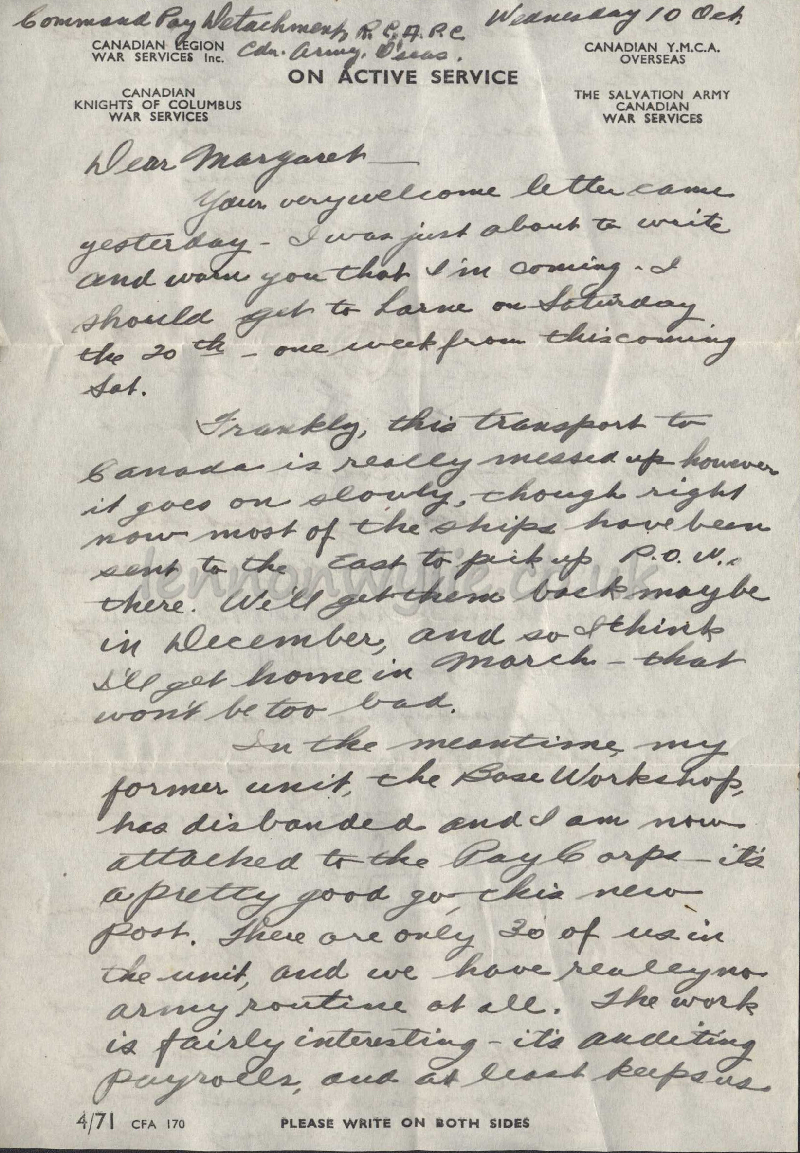 Command Pay Detachment, R.C.A.P.C
Wednesday 10 Oct.
Cdn. Army, O'seas.
CANADIAN LEGION
WAR SERVICES Inc.
CANADIAN Y.M.C.A.
OVERSEAS
ON ACTIVE SERVICE
CANADIAN
KNIGHTS OF COLUMBUS
WAR SERVICES
THE SALVATION ARMY
CANADIAN
WAR SERVICES
Dear Margaret —
Your very welcome letter came
yesterday - I was just about to write
and warn you that I'm coming - I
should get to Larne on Saturday
the 20th - one week from this coming
Sat.
Frankly, this transport to
Canada is really messed up however
it goes on slowly, though right
now most of the ships have been
sent to the East to pick up P.O.W.'s
there. We'll get them back maybe
in December, and so I think
I'll get home in March - that
won't be too bad.
In the meantime, my
former unit, the Base Workshop,
has disbanded and I am now
attached to the Pay Corps - it's
a pretty good go, this new
post. There are only 30 of us in
the unit, and we have really no
army routine at all. The work
is fairly interesting - it's auditing
payrolls, and at least keeps us
lennonwylie.co.uk
4/71 CFA 170
PLEASE WRITE ON BOTH SIDES